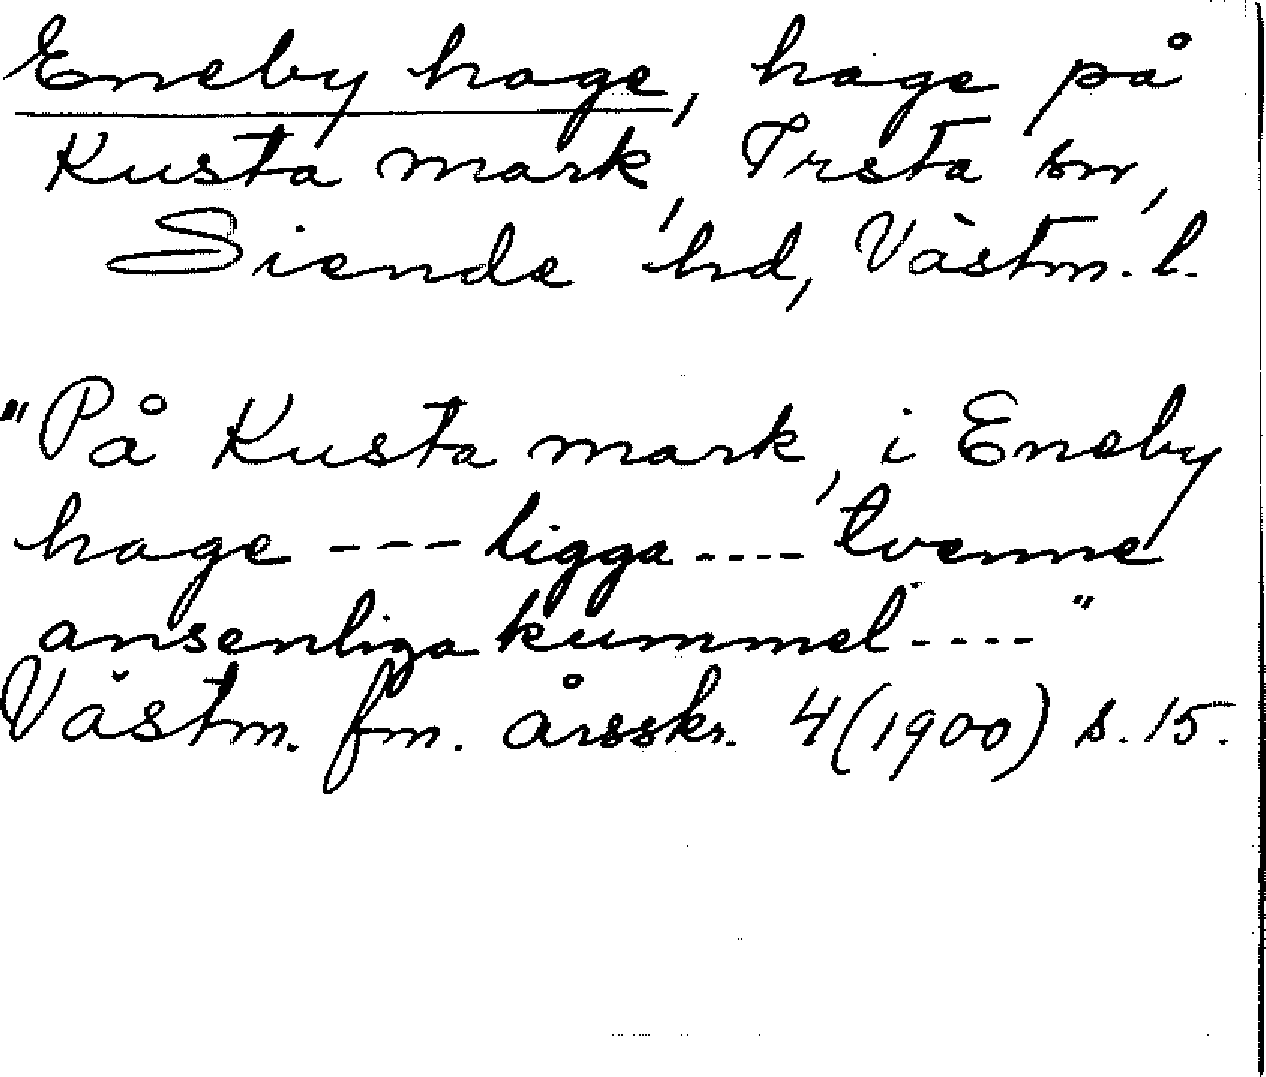 Eneby hage, hage på
Kusta mark, Irsta sn,
Siende hd, Västm. l.
"På Kusta mark, i Eneby
hage --- ligga ---- tvenne
ansenliga kummel ----"
Västm. fm. årsskr. 4 (1900) s. 15.